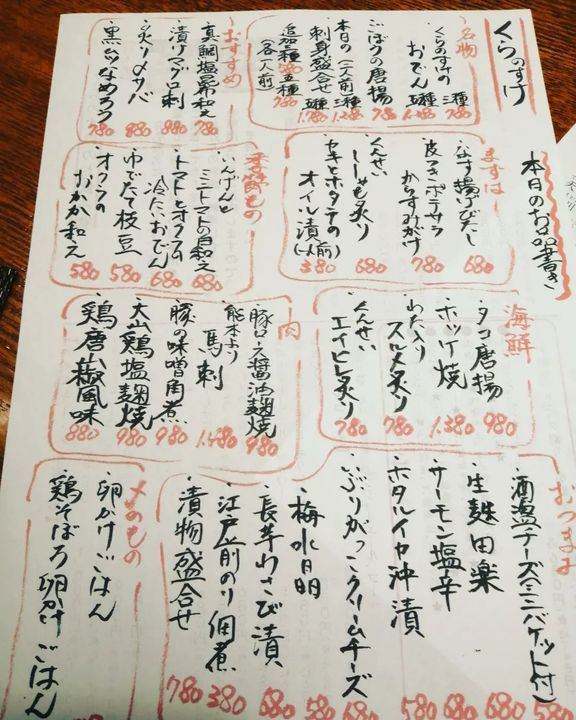 くらのすけ
本日のお品書き
名物
・くらのすけの 三種 780
おでん 五種 1.280
・ごぼうの唐揚 780
・本日の(一人前)三種 1.280
刺身盛合せ 五種 1.780
おすすめ
・真鯛塩昆布和え 780
・漬けマグロ刺 880
・炙り〆サバ 880
・黒ムツなめろう 780
まずは
・茄子揚げびたし 680
・皮つきポテサラ
からすみがけ 780
・くんせい
ししゃも炙り 680
・カキとホタテの
オイル漬(一人前) 380
季節もの
・いんげんと
ミニトマトの白和え 680
・トマトとオクラの
冷たいおでん 680
・ゆでたて枝豆 580
・オクラの
おかか和え 580
海鮮
・タコ唐揚 980
・ホッケ焼 1.380
・わた入り
スルメ炙り 780
・くんせい
エイヒレ炙り 780
肉
・豚ロース醤油麹焼 980
・熊本より
馬刺 1.580
・豚の味噌角煮 980
・大山鶏塩麹焼 980
・鶏唐山椒風味 880
おつまみ
・酒盗チーズ(ミニバゲット付) 580
・生麩田楽 680
・サーモン塩辛 680
・ホタルイカ沖漬 580
・いぶりがっこクリームチーズ 680
・梅水晶 580
・長芋わさび漬 680
・江戸前のり佃煮 380
・漬物盛合せ 780
〆のもの
・卵かけごはん
・鶏そぼろ卵かけごはん